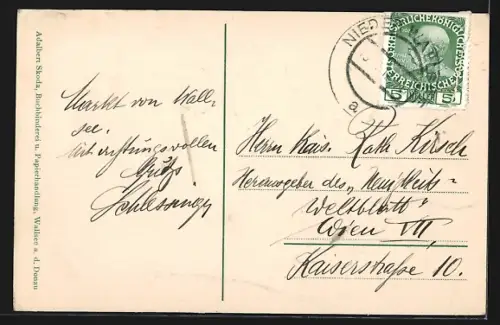 Adalbert Skoda, Buchbinderei u. Papierhandlung, Wallsee a. d. Donau
Markt von Wall-
see.
Mit achtungsvollen
Gruß
Schlesinger
NIEDER
a
KAISERLICHEKÖNIGLICHE
ÖSTERREICHISCHE
5 5
Herrn Kais. Rath Kirsch
Herausgeber des „Neuigkeits-
Weltblatt"
Wien VII,
Kaiserstraße 10.